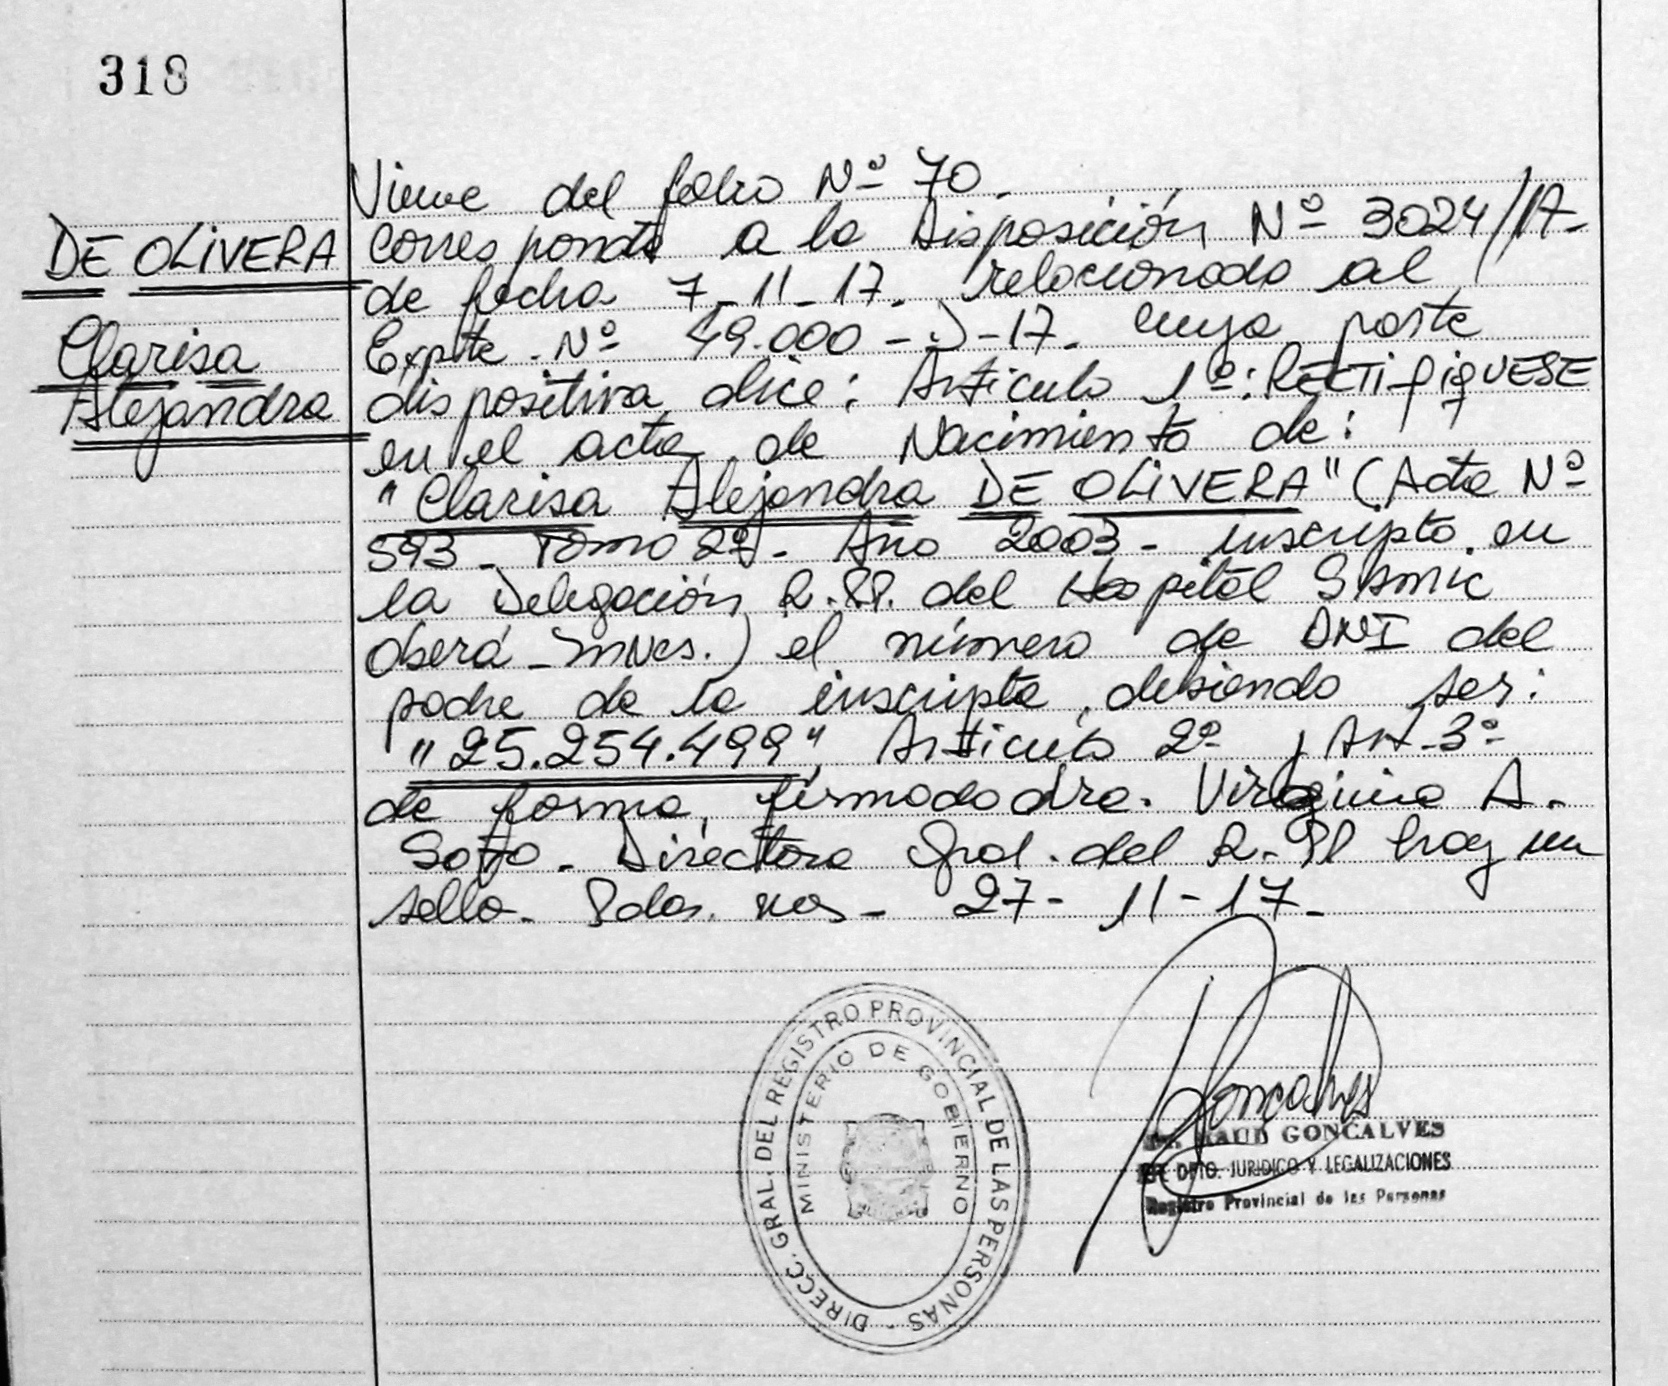 318
Viene del folio Nº 70.
DE OLIVERA
Clarisa
Alejandra
Corresponde a la Disposición Nº 3024/17-
de fecha 7-11-17. relacionado al
Expte. Nº 49.000 - J-17. cuya parte
dispositiva dice: Artículo 1º: RECTifiqUESE
en el acta de Nacimiento de:
"Clarisa Alejandra DE OLIVERA" (Acta Nº
593- Tomo 2º- Año 2003- inscripta en
la Delegación R.PP. del Hospital SAMIC
Oberá - Mnes.) el número de DNI del
padre de la inscripta, debiendo ser:
"25.254.499", Artículo 2º, Art-3º
de forma, firmado dra. Virginia A.
Soto. Directora Gral. del R.PP hay un
sello. Pdas. - 27-11-17.
DIRECC. GRAL. DEL REGISTRO PROVINCIAL DE LAS PERSONAS -
MINISTERIO DE GOBIERNO
Goncalves
GONCALVES
DPTO. JURIDICO Y LEGALIZACIONES
Registro Provincial de las Personas